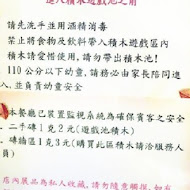 進入積木遊戲池之前
請先洗手並用酒精消毒
禁止將食物及飲料帶入積木遊戲區內
積木請愛惜使用,請勿帶出積木池!
110 公分以下幼童,請務必由家長陪同進
入,並自負幼童安全
本餐廳已裝置監視系統為確保賓客之安全
二手磚1克2元(遊戲池積木)
磚牆區1克3元(購買此區積木請洽服務人
員)
店內展品為私人收藏,請勿隨意觸摸,如有